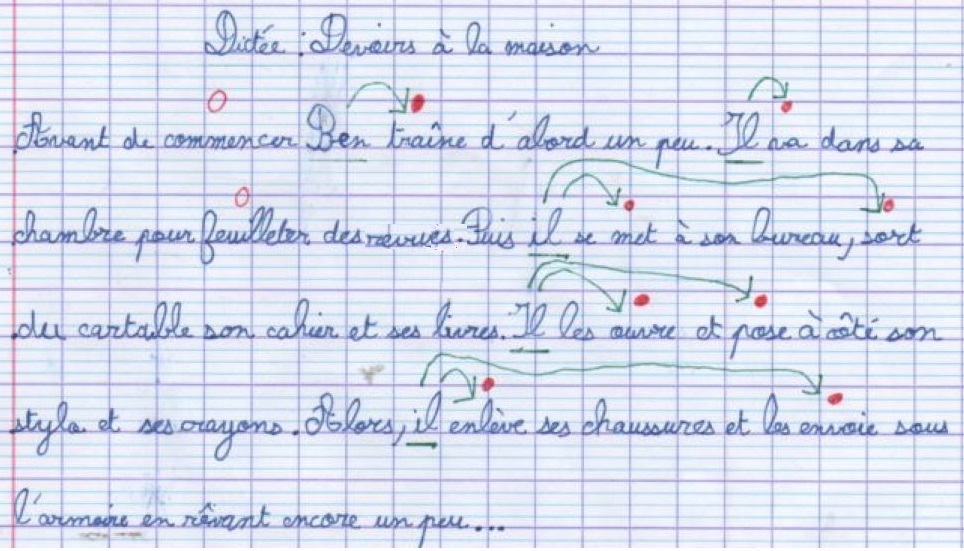 Dictée : Devoirs à la maison
Avant de commencer Ben traîne d'abord un peu. Il va dans sa
chambre pour feuilleter des revues. Puis il se met à son bureau, sort
du cartable son cahier et ses livres. Il les ouvre et pose à côté son
stylo et ses crayons. Alors, il enlève ses chaussures et les envoie sous
l'armoire en rêvant encore un peu...